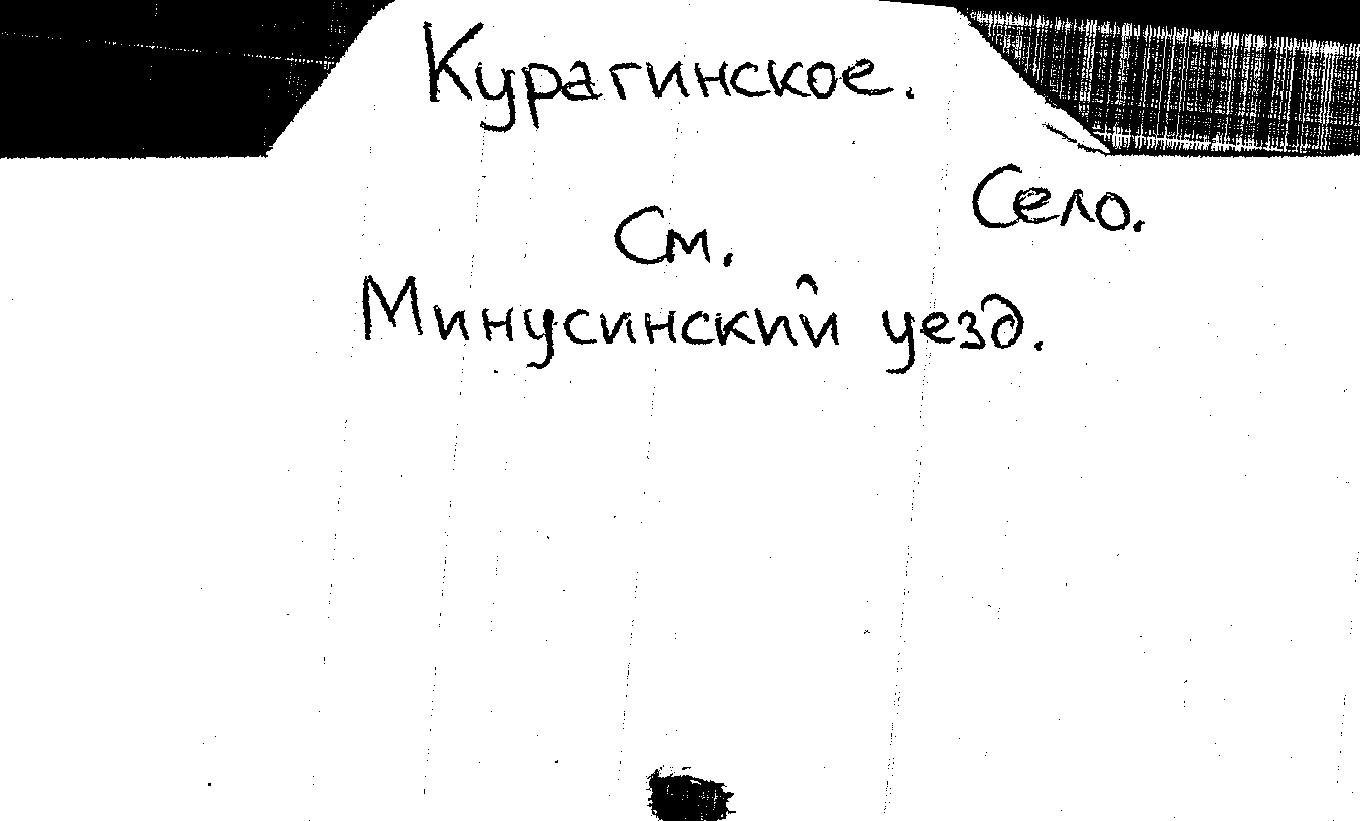 Курагинское.
Село.
См.
Минусинский уезд.